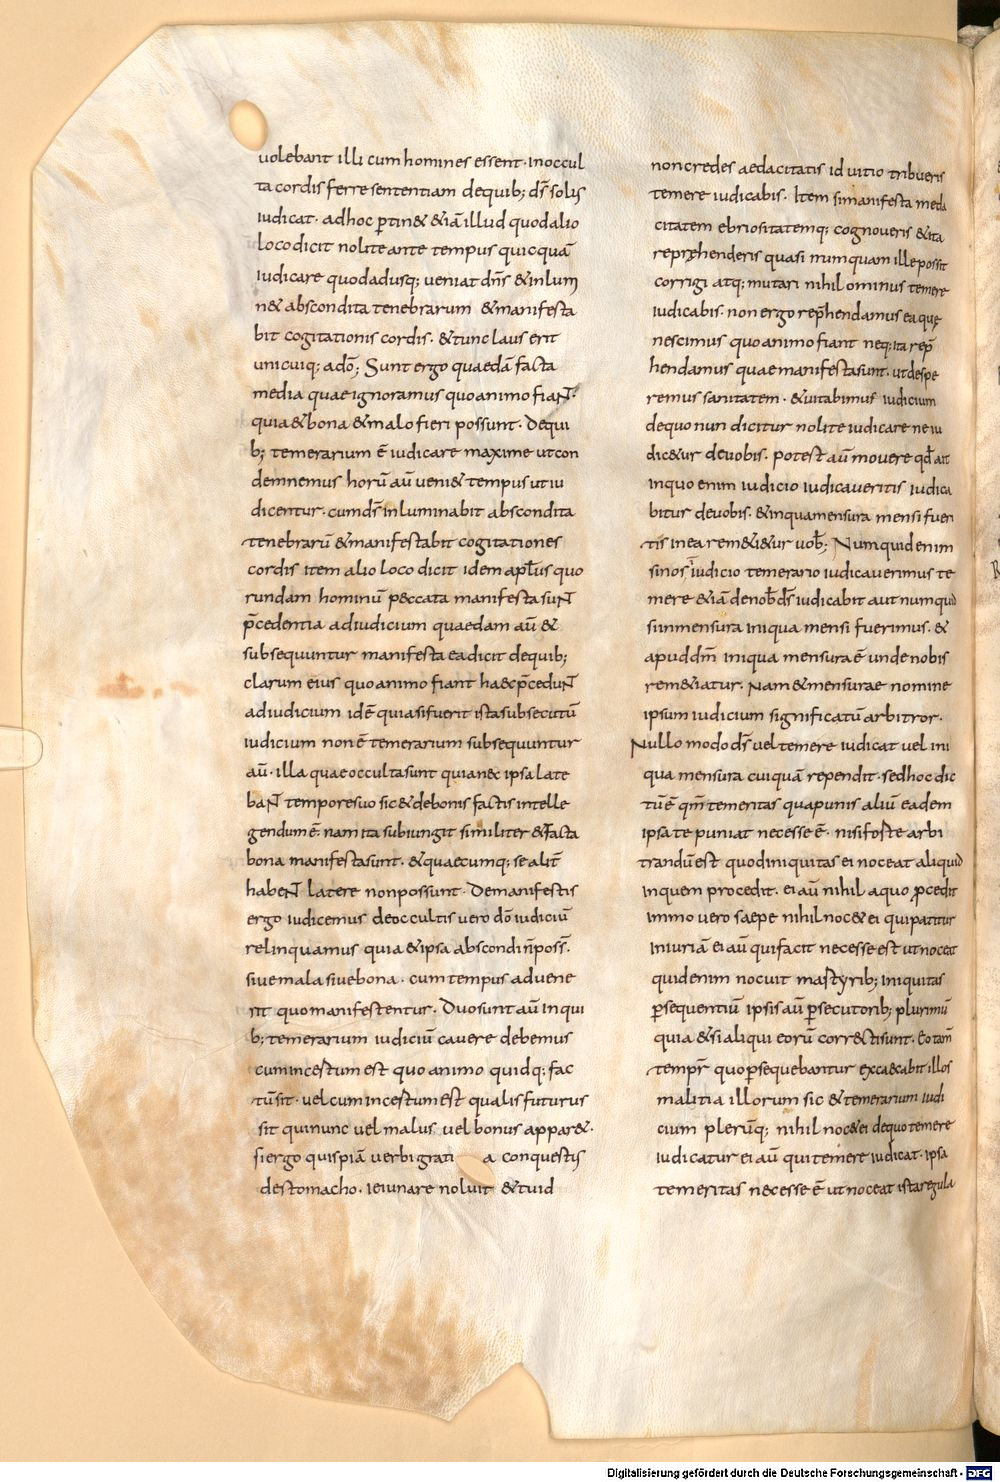 uolebant illi cum homines essent· inoccul
ta cordis ferre sententiam dequib; dš solis
iudicat· adhoc ptin& &iā illud quodalio
loco dicit nolite ante tempus quicquā
iudicare quodadusq; ueniat dñs &inlum
n& abscondita tenebrarum &manifesta
bit cogitationis cordis· &tunc laus erit
unicuiq; adō; Sunt ergo quaedā facta
media quae ignoramus quo animo fiant·
quia &bona &malo fieri possunt· Dequi
b; temerarium ē iudicare maxime utcon
demnemus horū aū ueni& tempus utiu
dicentur· cumdš inluminabit abscondita
tenebrarū &manifestabit cogitationes
cordis item alio loco dicit idem apłus quo
rundam hominū peccata manifesta sunt
p̄cedentia adiudicium quaedam aū &
subsequuntur manifesta ea dicit dequib;
clarum eius quo animo fiant haec p̄cedunt
adiudicium idē quia sifuerit ista subsecutū
iudicium non ē temerarium subsequuntur
aū· illa quae occulta sunt quia nec ipsa late
bant tempore suo sic &debonis factis intelle
gendum ē· nam ita subiungit similiter &facta
bona manifesta sunt· &quaecumq; se alit̄
habent latere non possunt· Demanifestis
ergo iudicemus deoccultis uero dō iudiciū
relinquamus quia &ipsa abscondi ñ poss̄·
siue mala siue bona· cum tempus aduene
rit quo manifestentur· Duo sunt aū inqui
b; temerarium iudiciū cauere debemus
cum incestum est quo animo quidq; fac
tū sit· uel cum incestum est qualis futurus
sit qui nunc uel malus uel bonus appar&·
si ergo quispiā uerbi grati a conquestis
destomacho· ieiunare noluit &tu id
non credes aedacitatis id uitio tribueris
temere iudicabis· Item simanifesta meda
citatem ebriositatemq; cognoueris &ita
repręhenderis quasi numquam ille possit
corrigi atq; mutari nihil ominus temere
iudicabis· non ergo rep̄hendamus ea quę
nescimus quo animo fiant neq; ita rep̄
hendamus quae manifesta sunt· ut despe
remus sanitatem· &uitabimus iudicium
dequo nun dicitur nolite iudicare ne iu
dic&ur deuobis· potest aū mouere qđ ait
Inquo enim iudicio iudicaueritis iudica
bitur deuobis· &inqua mensura mensi fuen
tis inea rem&i&ur uob̄; Numquid enim
sinos iudicio temerario iudicauerimus te
mere &iā denob̄ dš iudicabit aut numquid
siinmensura iniqua mensi fuerimus· &
apud dm̄ iniqua mensura ē unde nobis
rem&iatur· Nam &mensurae nomine
ipsum iudicium significatū arbitror·
Nullo modo dš uel temere iudicat uel ini
qua mensura cuiquā rependit· sed hoc dic
tū ē qm̄ temeritas qua punis aliū eadem
ipsa te puniat necesse ē· nisi foste arbi
trandū est quod iniquitas ei noceat aliquid
inquem procedit· ei aū nihil aquo p̄cedit
immo uero saepe nihil noc& ei qui patitur
iniuriā ei aū qui facit necesse est ut noceat
quid enim nocuit martyrib; iniquitas
p̄sequentiū ipsis aū p̄secutorib; plurimū
quia &si aliqui eorū correcti sunt· Eo tam̄
tempr̄ quo p̄sequebantur excaecabit illos
malitia illorum sic &temerarium iudi
cium plerūq; nihil noc&ei dequo temere
iudicatur ei aū qui temere iudicat· ipsa
temeritas necesse ē ut noceat ista regula
Digitalisierung gefördert durch die Deutsche Forschungsgemeinschaft - DFG